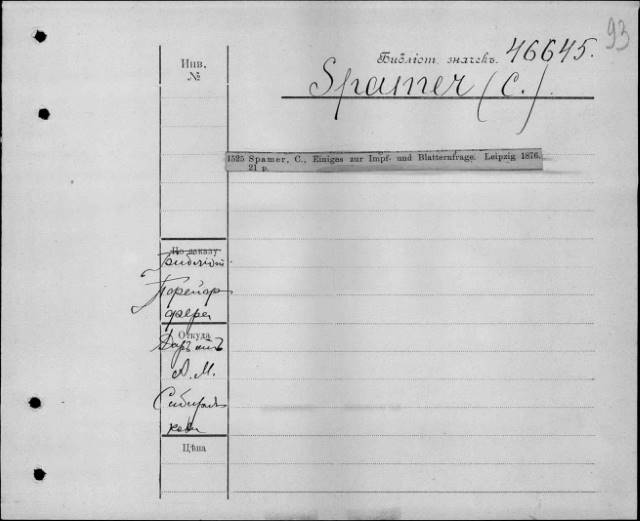 93
Инв.
№
Библіот. значекъ. 46645.
Spamer (C.)
1525 Spamer, C., Einiges zur Impf- und Blatternfrage. Leipzig 1876.
21 p.
По заказу
Библіот
Откуда
А. М.
Сибиряк
Цѣна